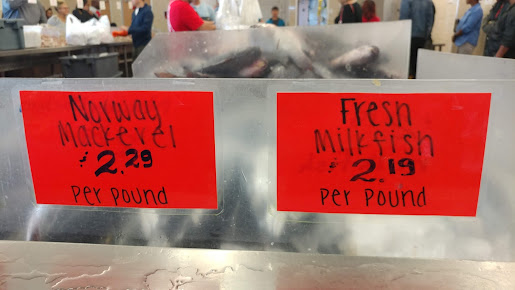 Norway
Mackerel
$2.29
Per Pound
Fresh
Milkfish
$2.19
Per Pound